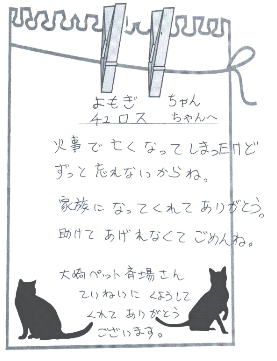 よもぎ ちゃん
チロス ちゃんへ
火事で亡くなってしまったけど
ずっと忘れないからね。
家族になってくれてありがとう。
助けてあげれなくてごめんね。
大崎ペット斉場さん
ていねいにくようして
くれてありがとう
ございます。